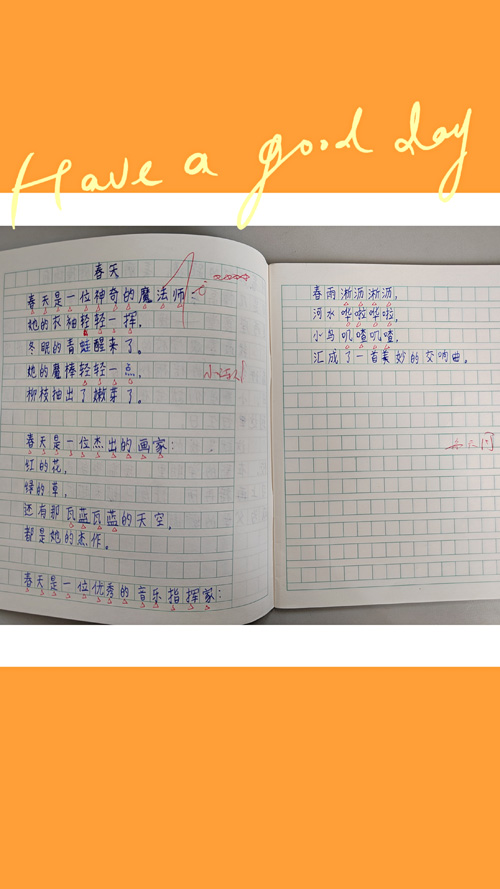 Have a good day
春天
春天是一位神奇的魔法师：
她的衣袖轻轻一挥，
冬眠的青蛙醒来了。
她的魔棒轻轻一点，
柳枝抽出了嫩芽了。
春天是一位杰出的画家：
红的花，
绿的草，
还有那瓦蓝瓦蓝的天空，
都是她的杰作。
春天是一位优秀的音乐指挥家：
春雨淅沥淅沥，
河水哗啦哗啦，
小鸟叽喳叽喳，
汇成了一首美妙的交响曲。